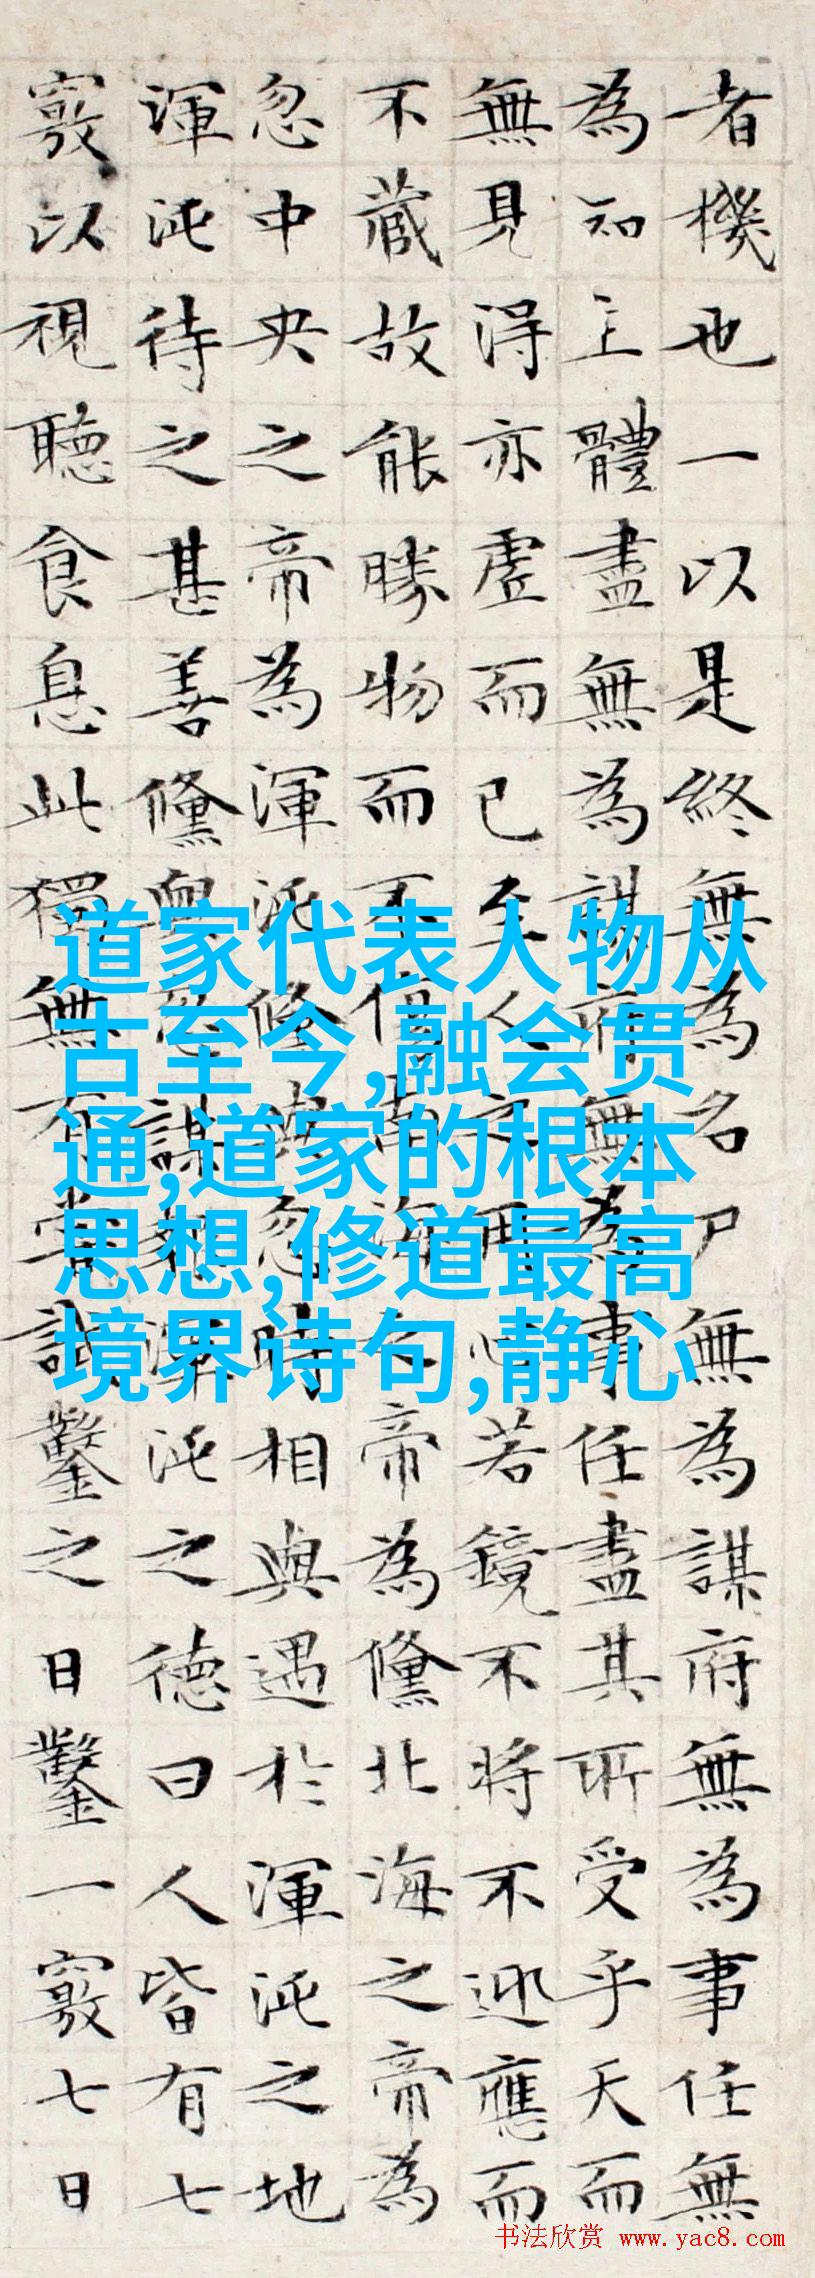 者機也一以是終無為名尸無為謀府無為事任無
為知主體盡無為謀府無為事任盡其所受乎天而
無見淂亦虛而已至人之用心若鏡不將不迎應而
不藏故能勝物而不傷南海之帝為儵北海之帝為
忽中央之帝為渾沌儵與忽時相與遇於渾沌之地
渾沌待之甚善儵與忽謀報渾沌之德曰人皆有七
竅以視聽食息此獨無有嘗試鑿之日鑿一竅七日
道家代表人物从
古至今,融会贯
通,道家的根本
思想,修道最高
境界诗句,静心
书法欣赏 www.yac8.com